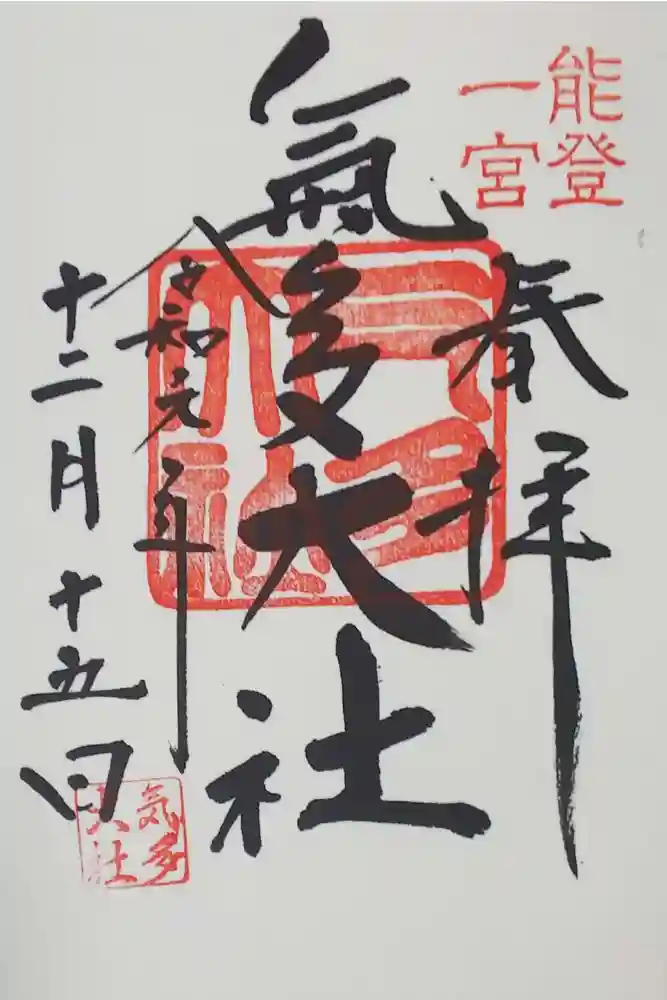 能登
一宮
奉拝
氣多大社
令和元年
十二月十五日
気多大社
気多
大社